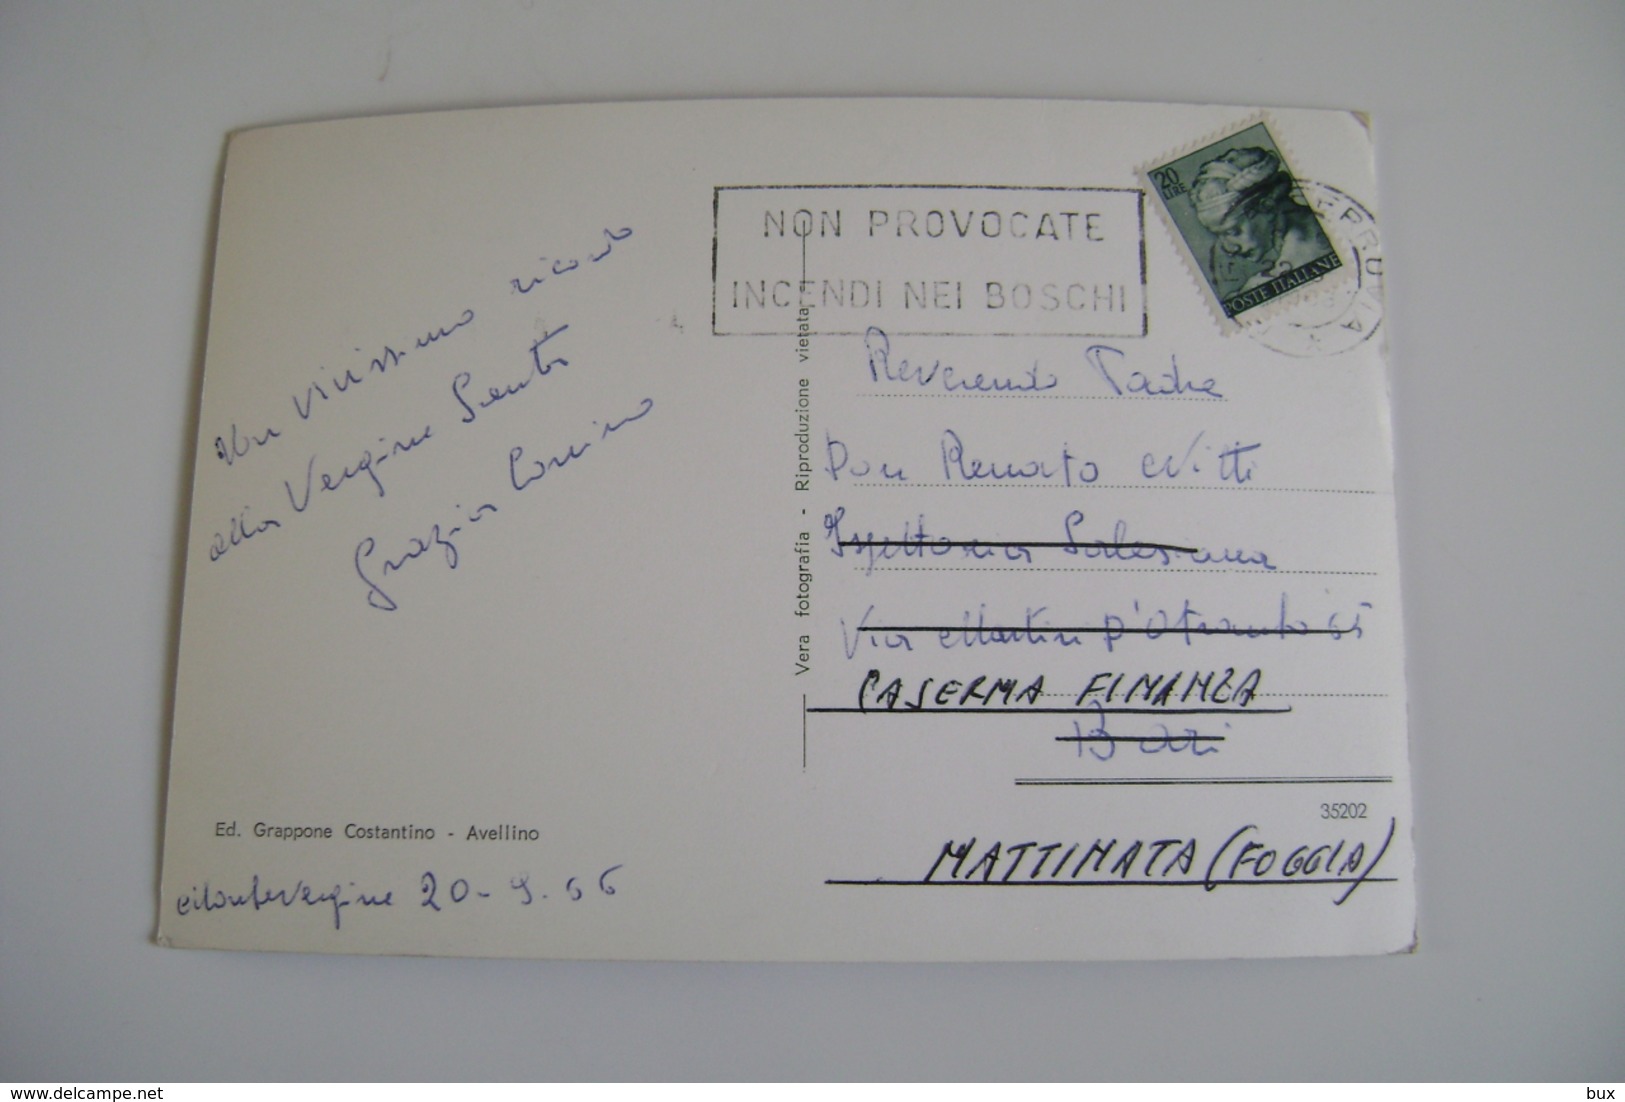 NON PROVOCATE
INCENDI NEI BOSCHI
20
LIRE
POSTE ITALIANE
Un vivissimo ricordo
alla Vergine Santa
Grazia
Reverendo Padre
Don Renato Vitti
Ispettoria Salesiana
Via Martiri D'Otranto 65
CASERMA FINANZA
Bari
35202
MATTINATA (FOGGIA)
Vera fotografia - Riproduzione vietata
Ed. Grappone Costantino - Avellino
Montevergine 20-9.66
delcampe.net
bux